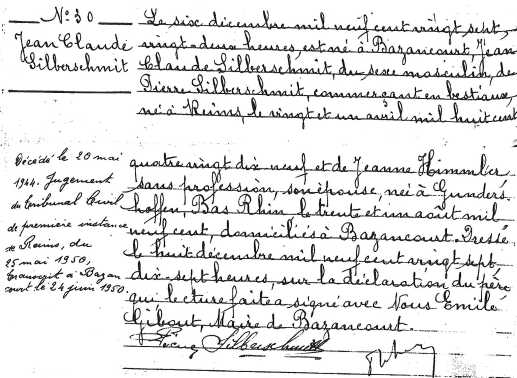 N° 30
Jean Claude
Silberschmit
Le six décembre mil neuf cent vingt sept,
vingt-deux heures, est né à Bazancourt, Jean
Claude Silberschmit, du sexe masculin, de
Pierre Silberschmit, commerçant en bestiaux,
né à Reims, le vingt et un avril mil huit cent
quatre vingt dix neuf et de Jeanne Himmler
sans profession, son épouse, née à Gunders-
hoffen, Bas Rhin le trente et un août mil
neuf cent, domiciliés à Bazancourt. Dressé
le huit décembre mil neuf cent vingt sept
dix-sept heures, sur la déclaration du père
qui lecture faite a signé avec Nous Emile
Gibout, Maire de Bazancourt.
Décédé le 20 mai
1944. Jugement
du tribunal Civil
de première instance
de Reims, du
25 mai 1950,
transcrit à Bazan
court le 24 juin 1950.
Silberschmitt